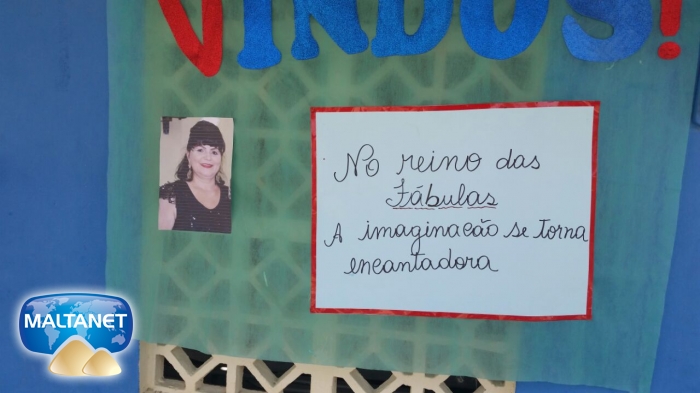 VINDOS!
No reino das
Fábulas
A imaginacão se torna
encantadora
MALTANET